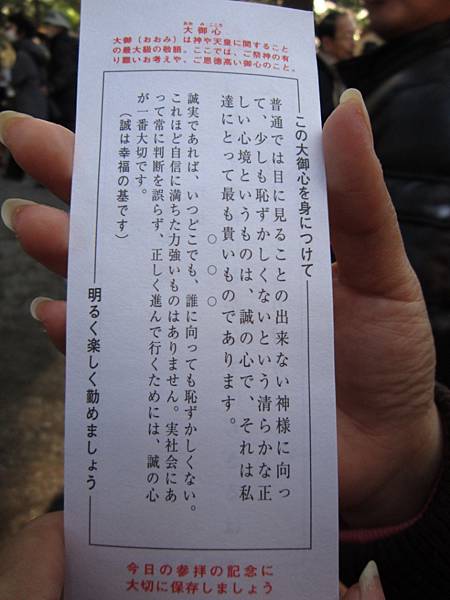 大御心
おおみこころ
大御（おおみ）は神や天皇に関すること
の最大級の敬語。ここでは、ご祭神の有
り難いお考えや、ご恩徳高い御心のこと。
この大御心を身につけて
普通では目に見ることの出来ない神様に向っ
て、少しも恥ずかしくないという清らかな正
しい心境というものは、誠の心で、それは私
達にとって最も貴いものであります。
○ ○ ○
誠実であれば、いつどこでも、誰に向っても恥ずかしくない。
これほど自信に満ちた力強いものはありません。実社会にあ
って常に判断を誤らず、正しく進んで行くためには、誠の心
が一番大切です。
（誠は幸福の基です）
明るく楽しく勤めましょう
今日の参拝の記念に
大切に保存しましょう